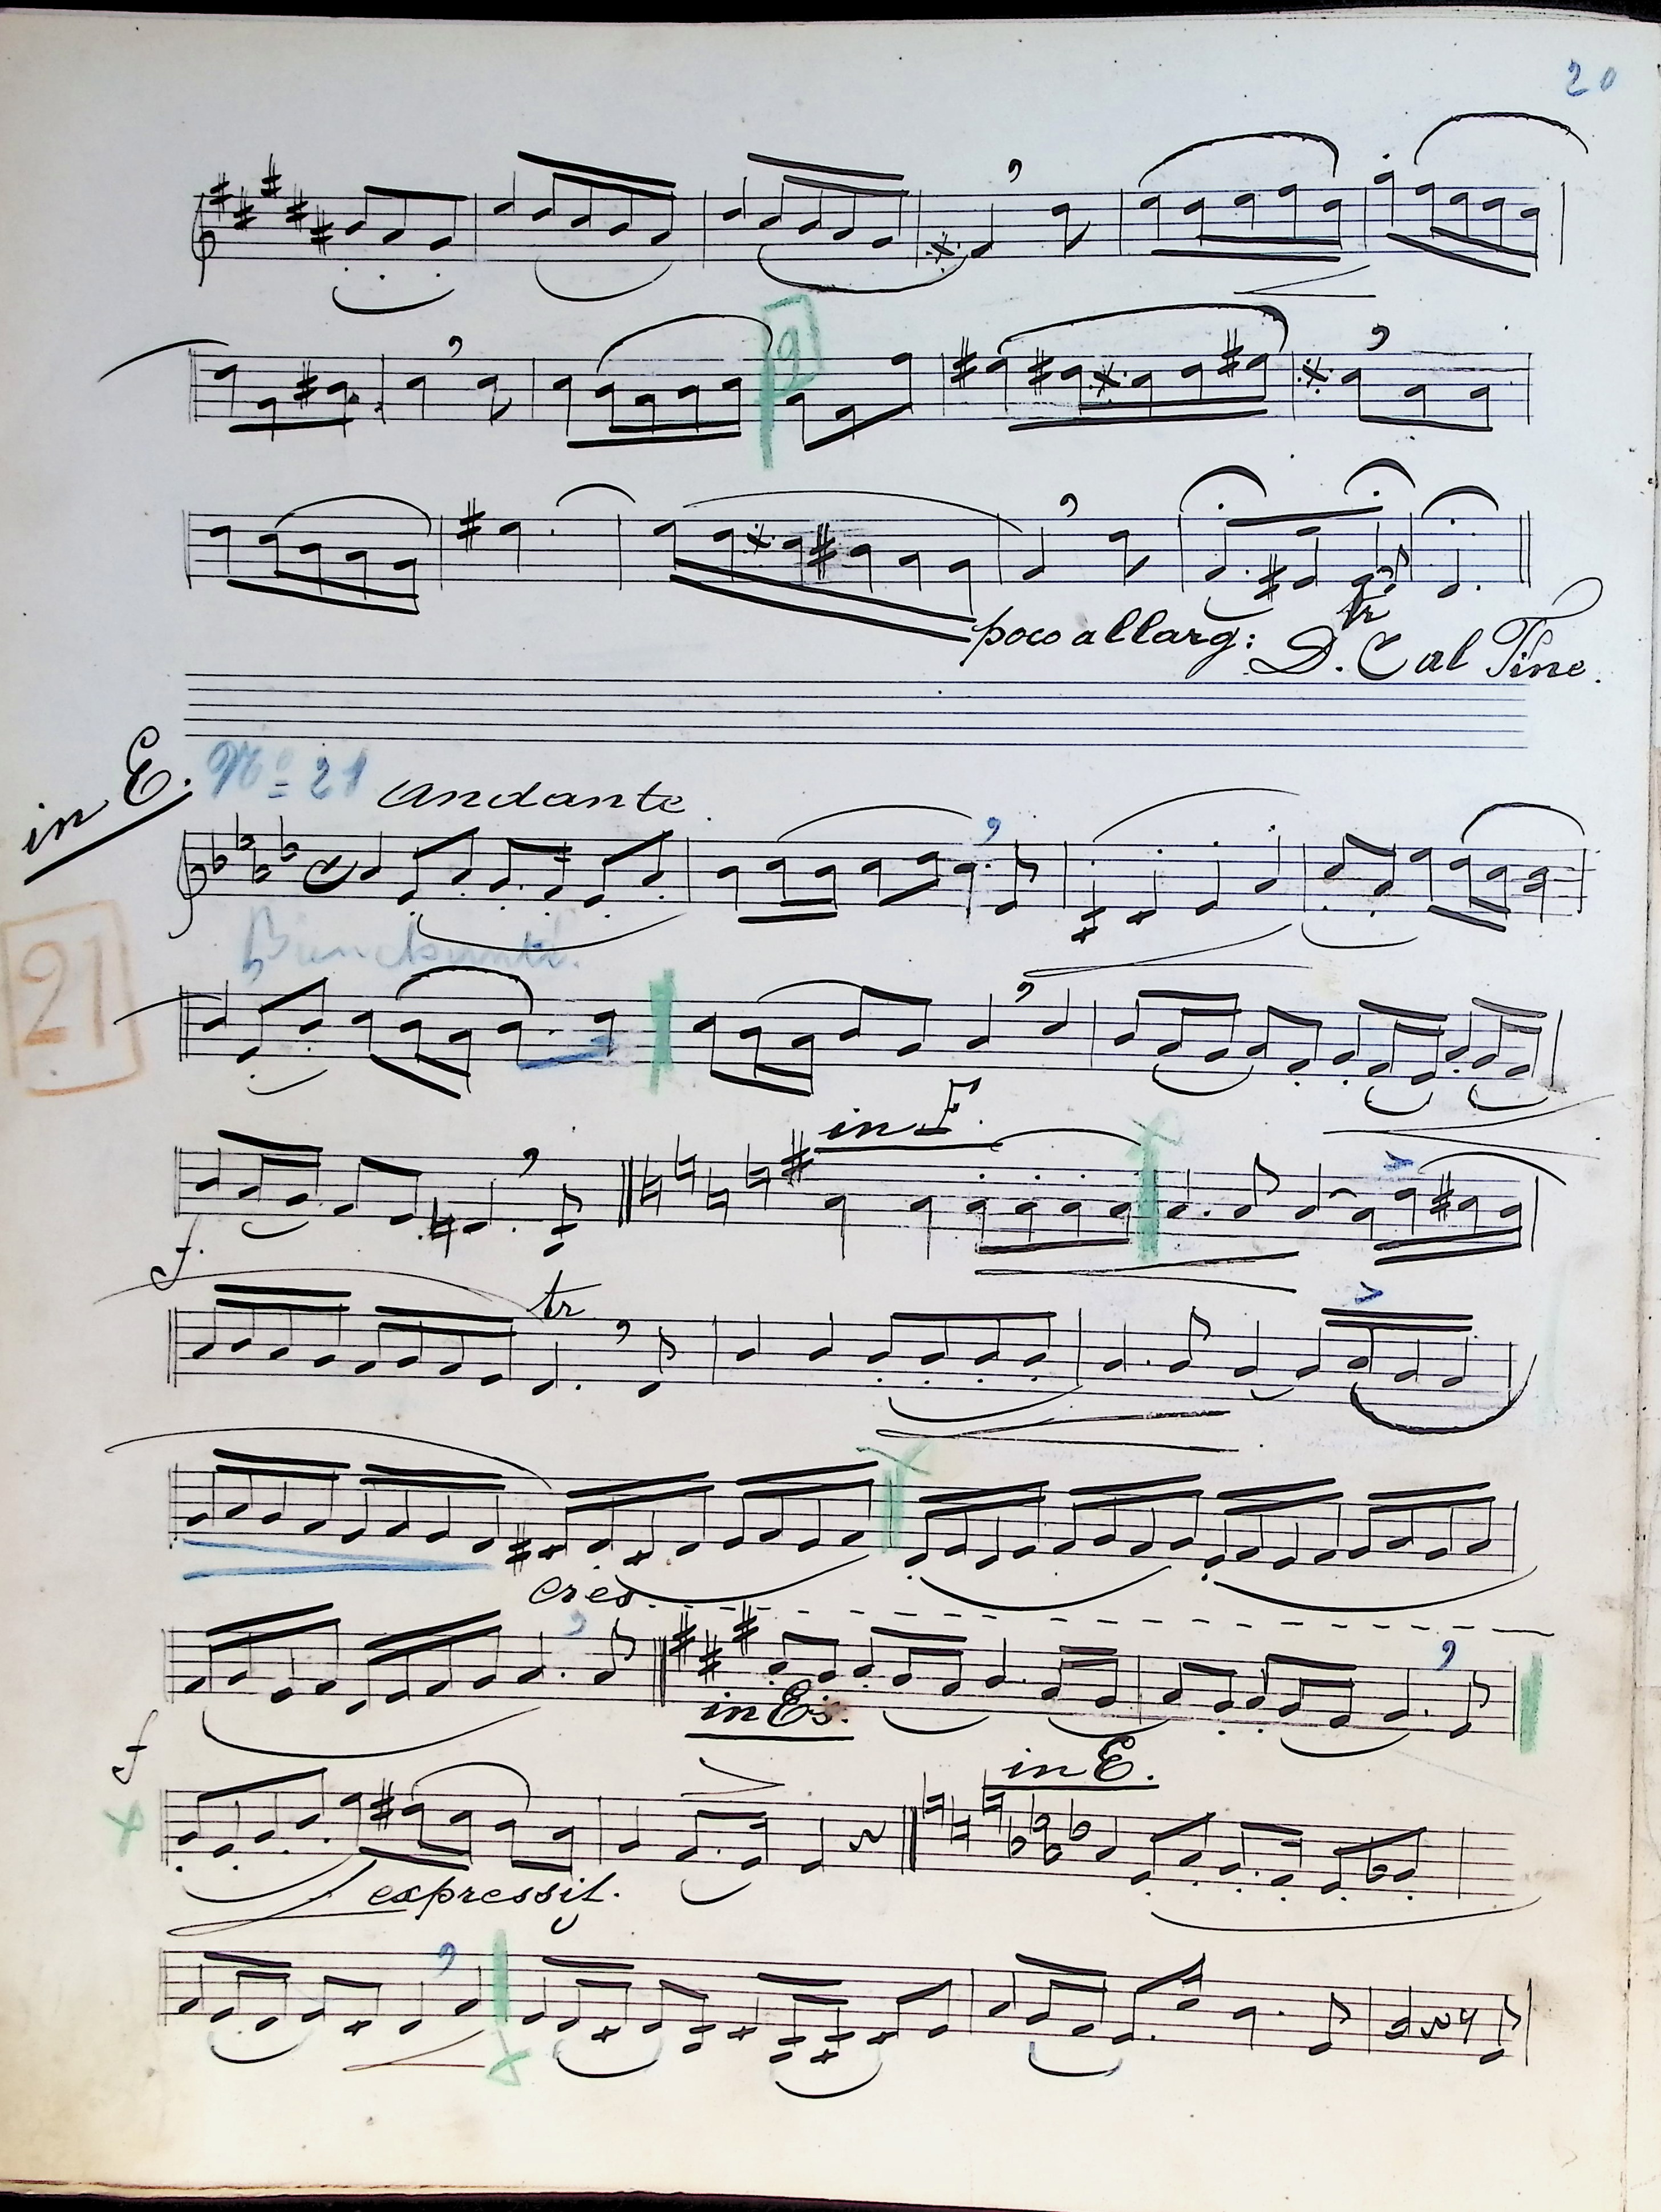 20
9
poco allarg: tr
D. C al Fine.
in E. Nº 21 Andante
21
in F.
f.
tr
cres.
in Es.
f
in E.
expressif.